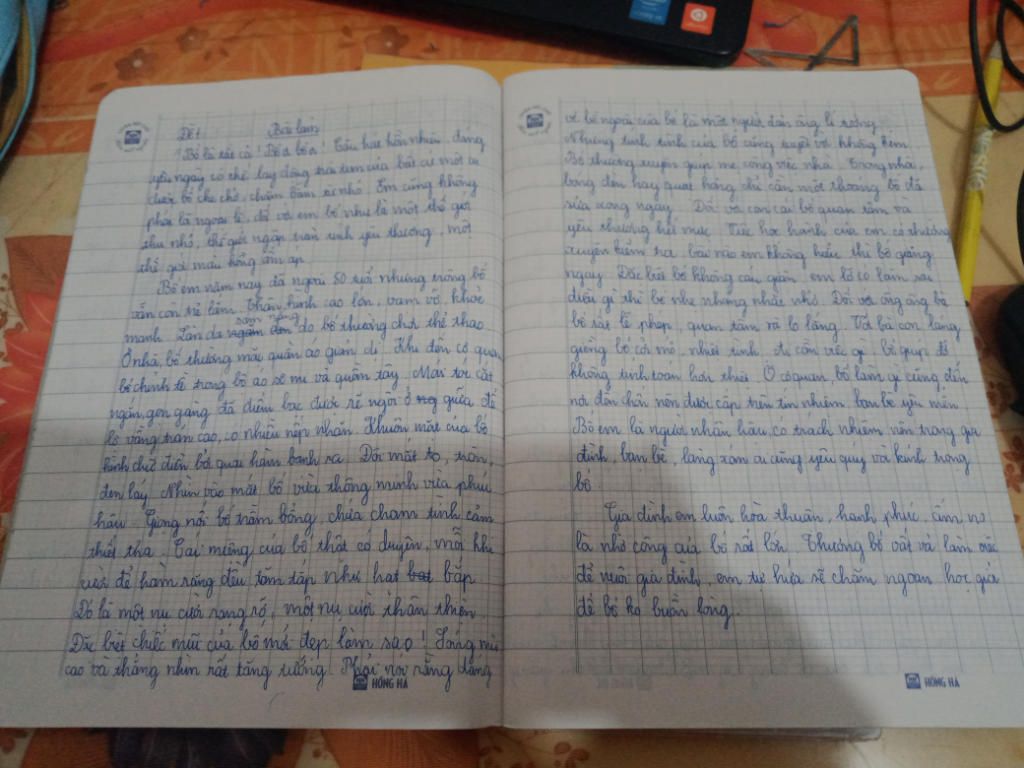 Đề 1 Bài làm
"Bố là tất cả! Bố ơi bố ơi! Câu hát hồn nhiên, đáng
yêu ngay có thể lay động trái tim của bất cứ một ai
được bố che chở, chăm bẵm từ nhỏ. Em cũng không
phải là ngoại lệ, đối với em bố như là một thế giới
thu nhỏ, thế giới ngập tràn tình yêu thương, một
thế giới màu hồng ấm áp.
Bố em năm nay đã ngoài 50 tuổi nhưng trông bố
vẫn còn trẻ lắm. Thân hình cao lớn, vạm vỡ, khỏe
mạnh. Làn da ngăm đen sạm nắng do bố thường chơi thể thao.
Ở nhà, bố thường mặc quần áo giản dị. Khi đến cơ quan
bố chỉnh tề trong bộ áo sơ mi và quần tây. Mái tóc cắt
ngắn, gọn gàng đã điểm bạc được rẽ ngôi ở giữa để
lộ vầng trán cao, có nhiều nếp nhăn. Khuôn mặt của bố
hình chữ điền bởi quai hàm banh ra. Đôi mắt to, tròn,
đen láy. Nhìn vào mắt bố vừa thông minh vừa phúc
hậu. Giọng nói bố trầm bổng, chứa chan tình cảm
thiết tha. Cái miệng của bố thật có duyên, mỗi khi
cười để hàm răng đều tăm tắp như hạt bắp.
Đó là một nụ cười rạng rỡ, một nụ cười thân thiện.
Đặc biệt chiếc mũi của bố mới đẹp làm sao! Sống mũi
cao và thẳng nhìn rất tăng tướng. Phải nói rằng dáng
vẻ bề ngoài của bố là một người đàn ông lí tưởng.
Nhưng tính tình của bố cũng tuyệt vời không kém.
Bố thường xuyên giúp mẹ công việc nhà. Trong nhà,
bóng đèn hay quạt hỏng chỉ cần một thoáng bố đã
sửa xong ngay. Đối với con cái bố quan tâm và
yêu thương hết mực. Việc học hành của em có thường
xuyên kiểm tra, bài nào em không hiểu thì bố giảng
ngay. Đặc biệt bố không cáu giận, em lỡ có làm sai
điều gì thì bố nhẹ nhàng nhắc nhở. Đối với ông bà
bố rất lễ phép, quan tâm và lo lắng. Với bà con làng
giềng bố cởi mở, nhiệt tình. Ai cần việc gì bố giúp đỡ
không tính toán hơn thiệt. Ở cơ quan, bố làm gì cũng đến
nơi đến chốn nên được cấp trên tín nhiệm, bạn bè yêu mến.
Bố em là người nhân hậu, có trách nhiệm nên trong gia
đình, bạn bè, làng xóm ai cũng yêu quý và kính trọng
bố.
Gia đình em luôn hòa thuận, hạnh phúc, ấm no
là nhờ công của bố rất lớn. Thương bố vất vả làm việc
để nuôi gia đình, em tự hứa sẽ chăm ngoan học giỏi
để bố ko buồn lòng.
HỒNG HÀ
HỒNG HÀ